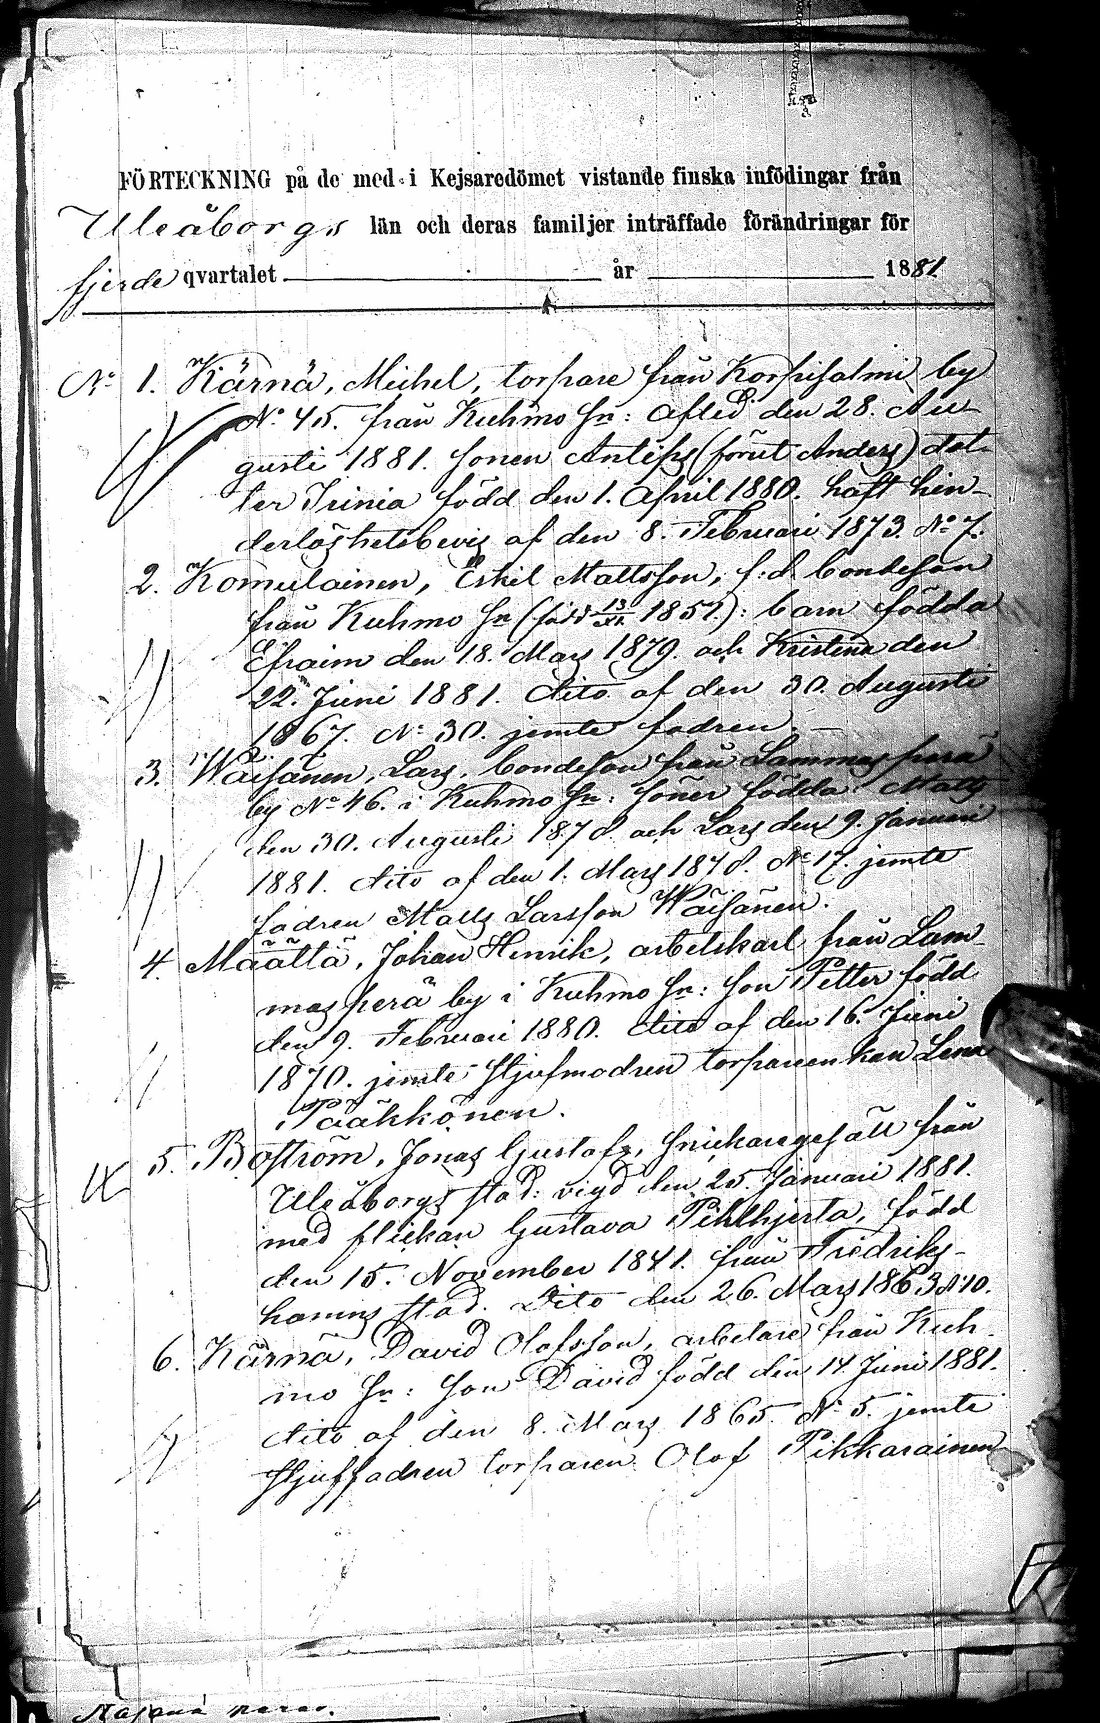 FÖRTECKNING på de med i Kejsaredömet vistande finska infödingar från
Uleåborgs län och deras familjer inträffade förändringar för
fjerde qvartalet år 1881
No 1. Kärnä, Michel, torpare från Korpisalmi by
No 45. från Kuhmo Sn: afled den 28. Au-
gusti 1881. sonen Antips (förut Anders) dot-
ter Irinia född den 1. April 1880. haft hin-
derlöshetsbevis af den 8. Februari 1873. No 7.
2. Komulainen, Eskil Mattsson, f:d. bondeson
från Kuhmo Sn (född 13/XI. 1857.): barn födda
Efraim den 18. Mars 1879. och Kristina den
22. Juni 1881. dito af den 30. Augusti
1867. No 30. jemte fadren. —
3. Wäisänen, Lars, bondeson från Lammasperä
by No 46. i Kuhmo Sn: söner födda Matts
den 30. Augusti 1878. och Lars den 9. Januari
1881. dito af den 1. Mars 1878. No 17. jemte
fadren Matts Larsson Wäisänen.
4. Määttä, Johan Henrik, arbetskarl från Lam-
masperä by i Kuhmo Sn: son Petter född
den 9. Februari 1880. dito af den 16. Juni
1870. jemte styfmodren torpareenkan Lena
Pääkkönen.
5. Boström, Jonas Gustafs, snickaregesäll från
Uleåborgs stad: vigd den 25. Januari 1881.
med flickan Gustava Pihlhjerta, född
den 15. November 1841. från Fredriks-
hamns stad. Dito den 26. Mars 1863 No 10.
6. Kärnä, David Olofsson, arbetare från Kuh-
mo Sn: son David född den 14. Juni 1881.
dito af den 8. Mars 1865. No 5. jemte
styffadren torparen Olof Pikkarainen